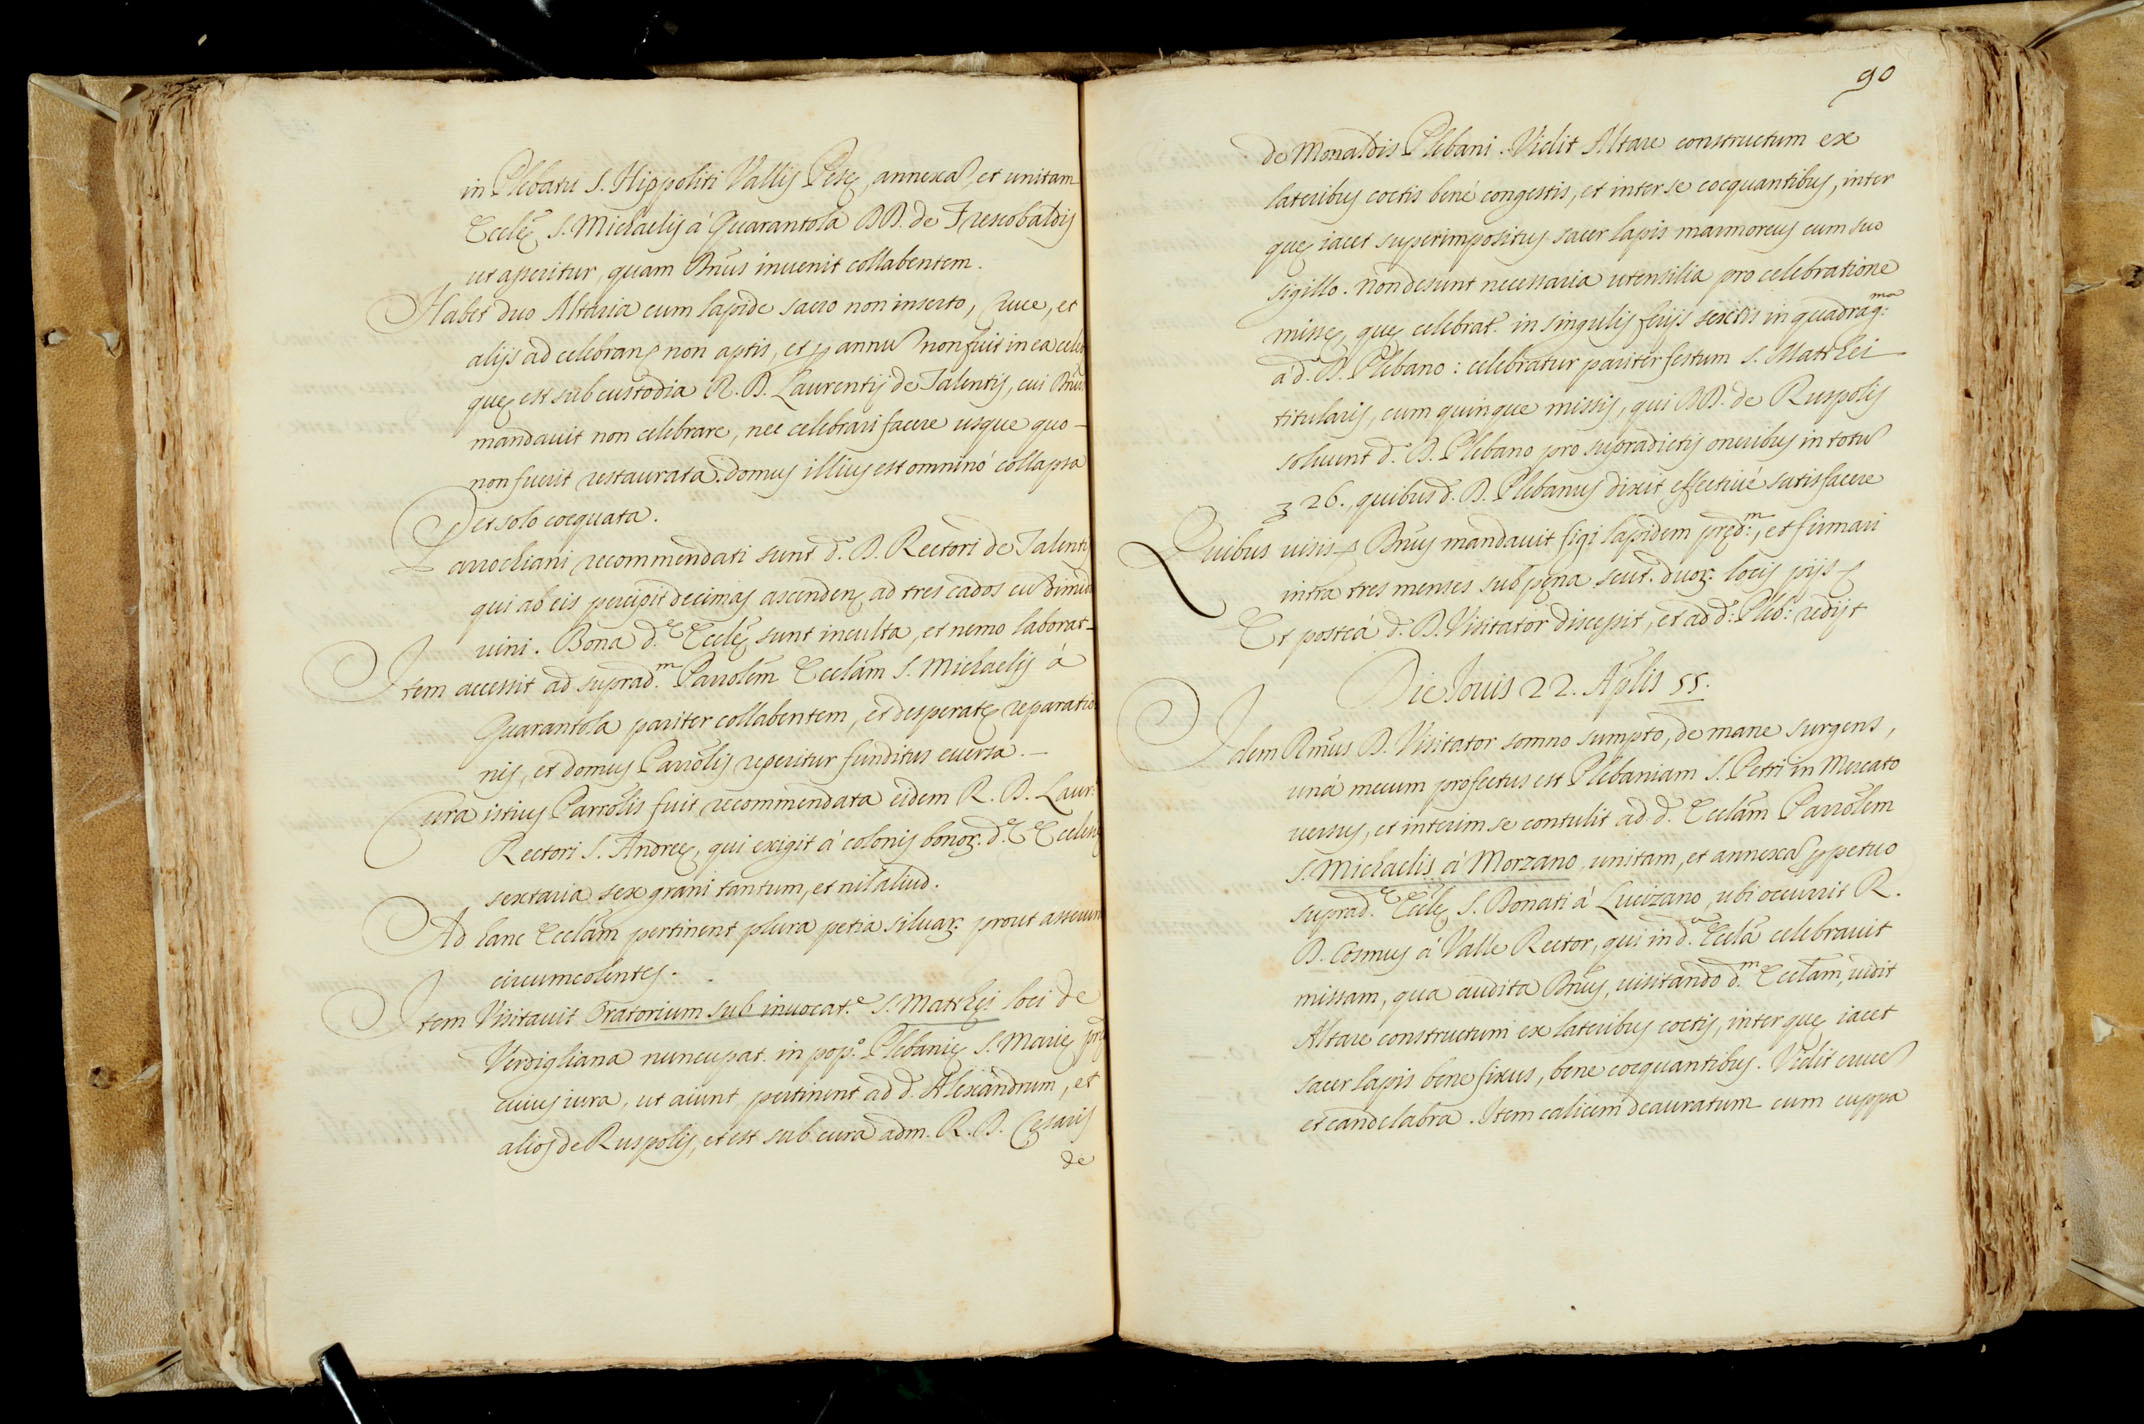 in Plebatu S. Hippoliti Vallis Pesę, annexa, et unitam
Eccłę S. Michaelis á Quarantola DD. de Frescobaldis
ut aperitur, quam Rm̃us inuenit collabentem.
Habet duo Altaria cum lapide sacro non inserto, Cruce, et
alijs ad celebran non aptis, et p annũ non fuit in ea
quę est sub custodia R. D. Laurentij de Talentis, cui Rm̃us
mandauit non celebrare, nec celebrari facere usque quo
non fuerit restaurata. Domus illius est omninó collapsa
et solo coequata.
Parrochiani recommendati sunt d. D. Rectori de Talentis
qui ab eis percipit decimas ascenden ad tres cados cũ dimid
uini. Bona d.ę Eccłę sunt inculta, et nemo laborat
Item accessit ad suprad.m Parrołem Eccłam S. Michaelis á
Quarantola pariter collabentem, et desperatę reparatio
nis, et domus Parrołis reperitur funditus euersa.
Cura istius Parrołis fuit recommendata eidem R. D. Laur:
Rectori S. Andreę, qui exigit á colonis bonor. d.ę Eccłesię
sextaria sex grani tantum, et nil aliud.
Ad hanc Eccłam pertinent plura petia siluar: prout asserunt
circumcolentes.
Item Visitauit Oratorium sub inuocat.e S. Matthęi loci de
Verdigliana nuncupat. in pop.o Plebanię S. Marię
cuius iura, ut aiunt, pertinent ad d. Alexandrum, et
alios de Ruspolis, et est sub cura adm. R. D. Cęsaris
de
90
de Monaldis Plebani. Vidit Altare constructum ex
lateribus coctis bené congestis, et inter se coequantibus, inter
quę iacet superimpositus sacer lapis marmoreus cum suo
sigillo. Non desunt necessaria utensilia pro celebratione
missę, quę celebrat. in singulis ferijs sextis in quadrag:ma
a d. D. Plebano: celebratur pariter festum S. Matthei
titularis, cum quinque missis, qui DD. de Ruspolis
soluunt d. D. Plebano pro supradictis oneribus in totũ
ʒ 26., quibus d. D. Plebanus dixit effectiué satisfacere
Quibus uisis Rm̃us mandauit figi lapidem pręd:m, et firmari
intra tres menses sub pęna scut. duor: locis pijs
Et posteá d. D. Visitator discessit, et ad d. Pleb: redijt
Die Iouis 22. Apłis 55.
Idem Rm̃us D. Visitator somno sumpto, de mane surgens,
uná mecum profectus est Plebaniam S. Petri in Mercato
uersus, et interim se contulit ad d. Eccłam Parrołem
S. Michaelis á Morzano, unitam, et annexã ppetuo
suprad.ę Eccłę S. Donati á Lucizano, ubi occurrit R.
D. Cosmus á Valle Rector, qui in d.a Eccła celebrauit
missam, qua audita Rm̃us, uisitando d.m Eccłam, uidit
Altare constructum ex lateribus coctis, inter quę iacet
sacer lapis bene fixus, bene coequantibus. Vidit crucẽ
et candelabra. Item calicem deauratum cum cuppa